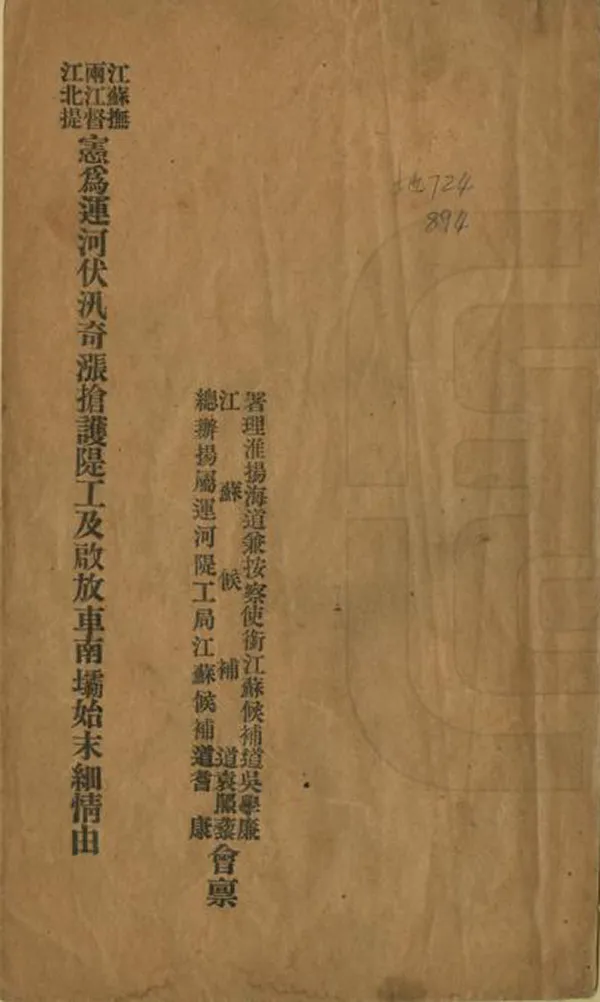 地724
894
署理淮揚海道兼按察使銜江蘇候補道吳學廉
江蘇候補道袁照藜
總辦揚屬運河隄工局江蘇候補道耆康
會禀
江蘇撫
兩江督
江北提
憲爲運河伏汛奇漲搶護隄工及啟放車南壩始末細情由